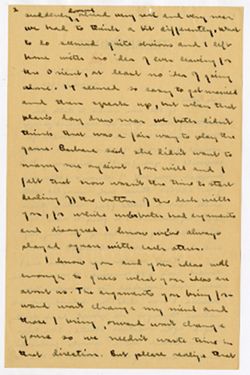 2
suddenly loomed very real and very near
we had to think a bit differently. What
to do seemed quite obvious and I left
home with no idea of ever leaving for
the Orient, at least no idea of going
alone. It seemed so easy to get married
and then speak up, but when that
day drew near we both didn't
think that was a fair way to play the
game. Barbara said she didn't want to
marry me against your will and I
felt that now wasn't the time to start
dealing off the bottom of the deck with
you, for while we've had arguments
and disagreed I know we've always
played square with each other.
I know you and your ideas well
enough to guess what your ideas are
about us. The arguments you bring for-
ward won't change my mind and
those I bring forward won't change
yours so we needn't waste time in
that direction. But please realize that